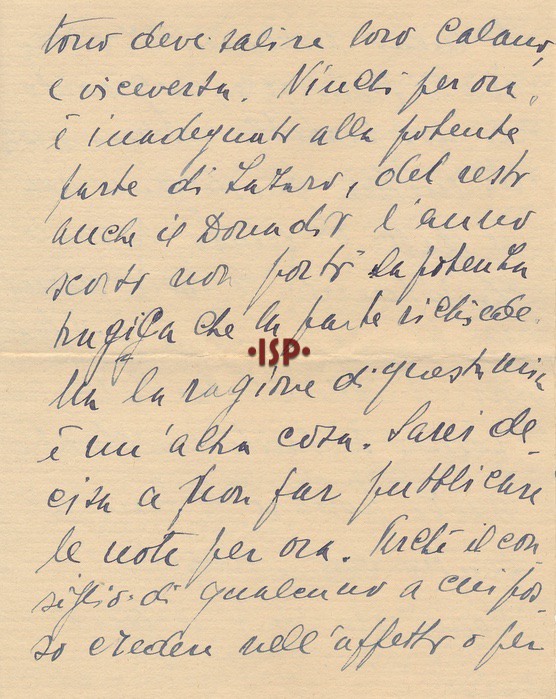 tono deve salire loro calano,
e viceversa. Vinchi per ora,
è inadeguato alla potente
parte di Lazaro, del resto
anche il Donadio l'anno
scorso non portò la potenza
tragica che la parte richiede.
Ma la ragione di questa mia
è un'altra cosa. Sarei de
cisa a non far pubblicare
le note per ora. Perché il con
siglio di qualcuno a cui pos
so credere nell'affetto o per
·ISP·